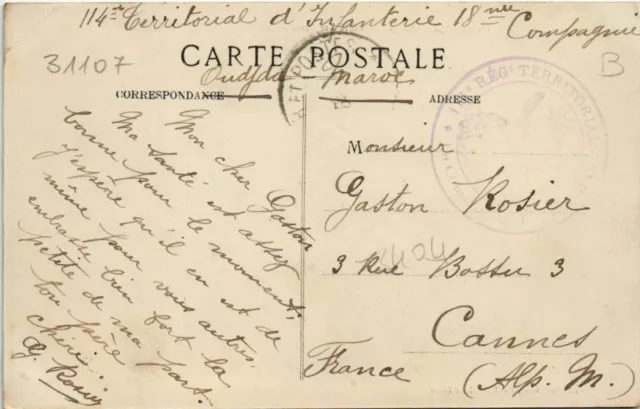 114e Territorial d'Infanterie 18me Compagnie
CARTE POSTALE
31107
B
Oudjda Maroc
CORRESPONDANCE
ADRESSE
POSTES
RÉGt TERRITORIAL
Mon cher Gaston
Ma santé est assez
bonne pour le moment,
j'espère qu'il en est de
même pour vous autres.
embrasse bien fort la
petite de ma part.
ton père
chéri...
G. Rosier
Monsieur
Gaston Rosier
2404
3 Rue Bossu 3
Cannes
France (Alp. M.)